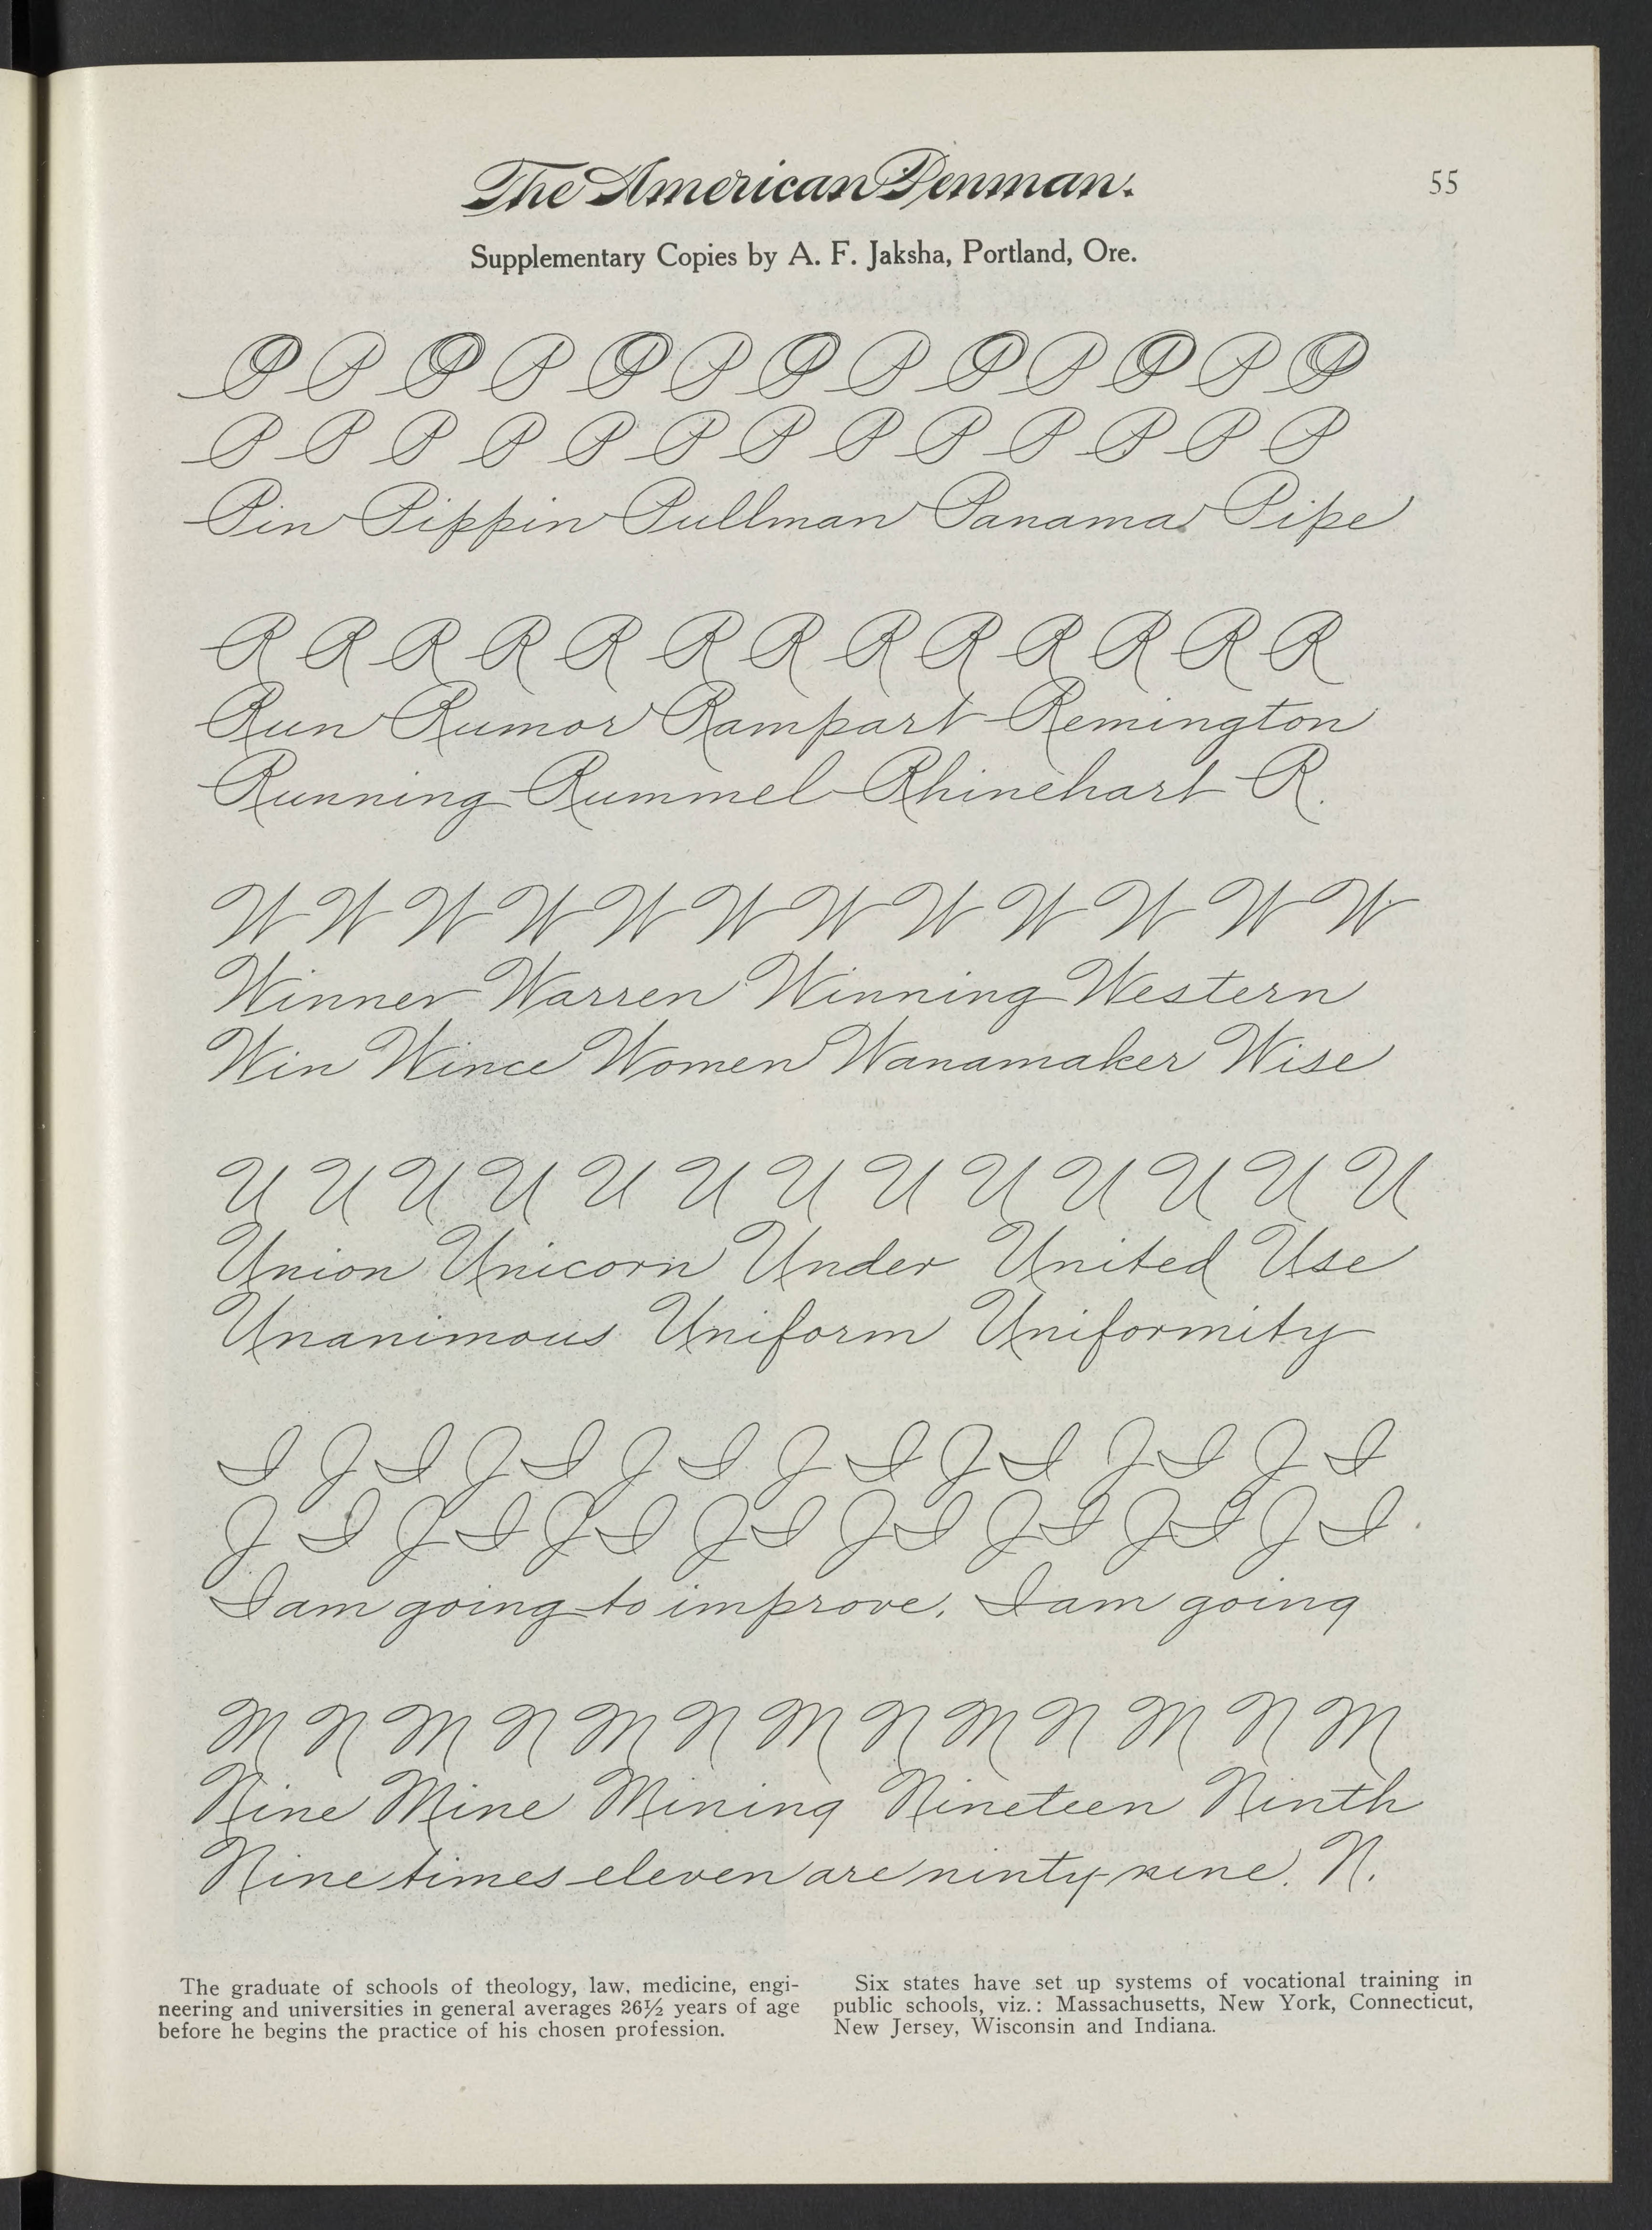 The American Penman.
55
Supplementary Copies by A. F. Jaksha, Portland, Ore.
P P P P P P P P P P P P P
P P P P P P P P P P P P P
Pin Pippin Pullman Panama Pipe
R R R R R R R R R R R R R
Run Rumor Rampart Remington
Running Rummel Rhinehart R.
W W W W W W W W W W W W
Winner Warren Winning Western
Win Wince Women Wanamaker Wise
U U U U U U U U U U U U U
Union Unicorn Under United Use
Unanimous Uniform Uniformity
I J I J I J I J I J I J I J I
J I J I J I J I J I J I J I J I
I am going to improve. I am going
M N M N M N M N M N M N M
Nine Mine Mining Nineteen Ninth
Nine times eleven are ninty-nine. N.
The graduate of schools of theology, law, medicine, engi-
neering and universities in general averages 26½ years of age
before he begins the practice of his chosen profession.
Six states have set up systems of vocational training in
public schools, viz.: Massachusetts, New York, Connecticut,
New Jersey, Wisconsin and Indiana.